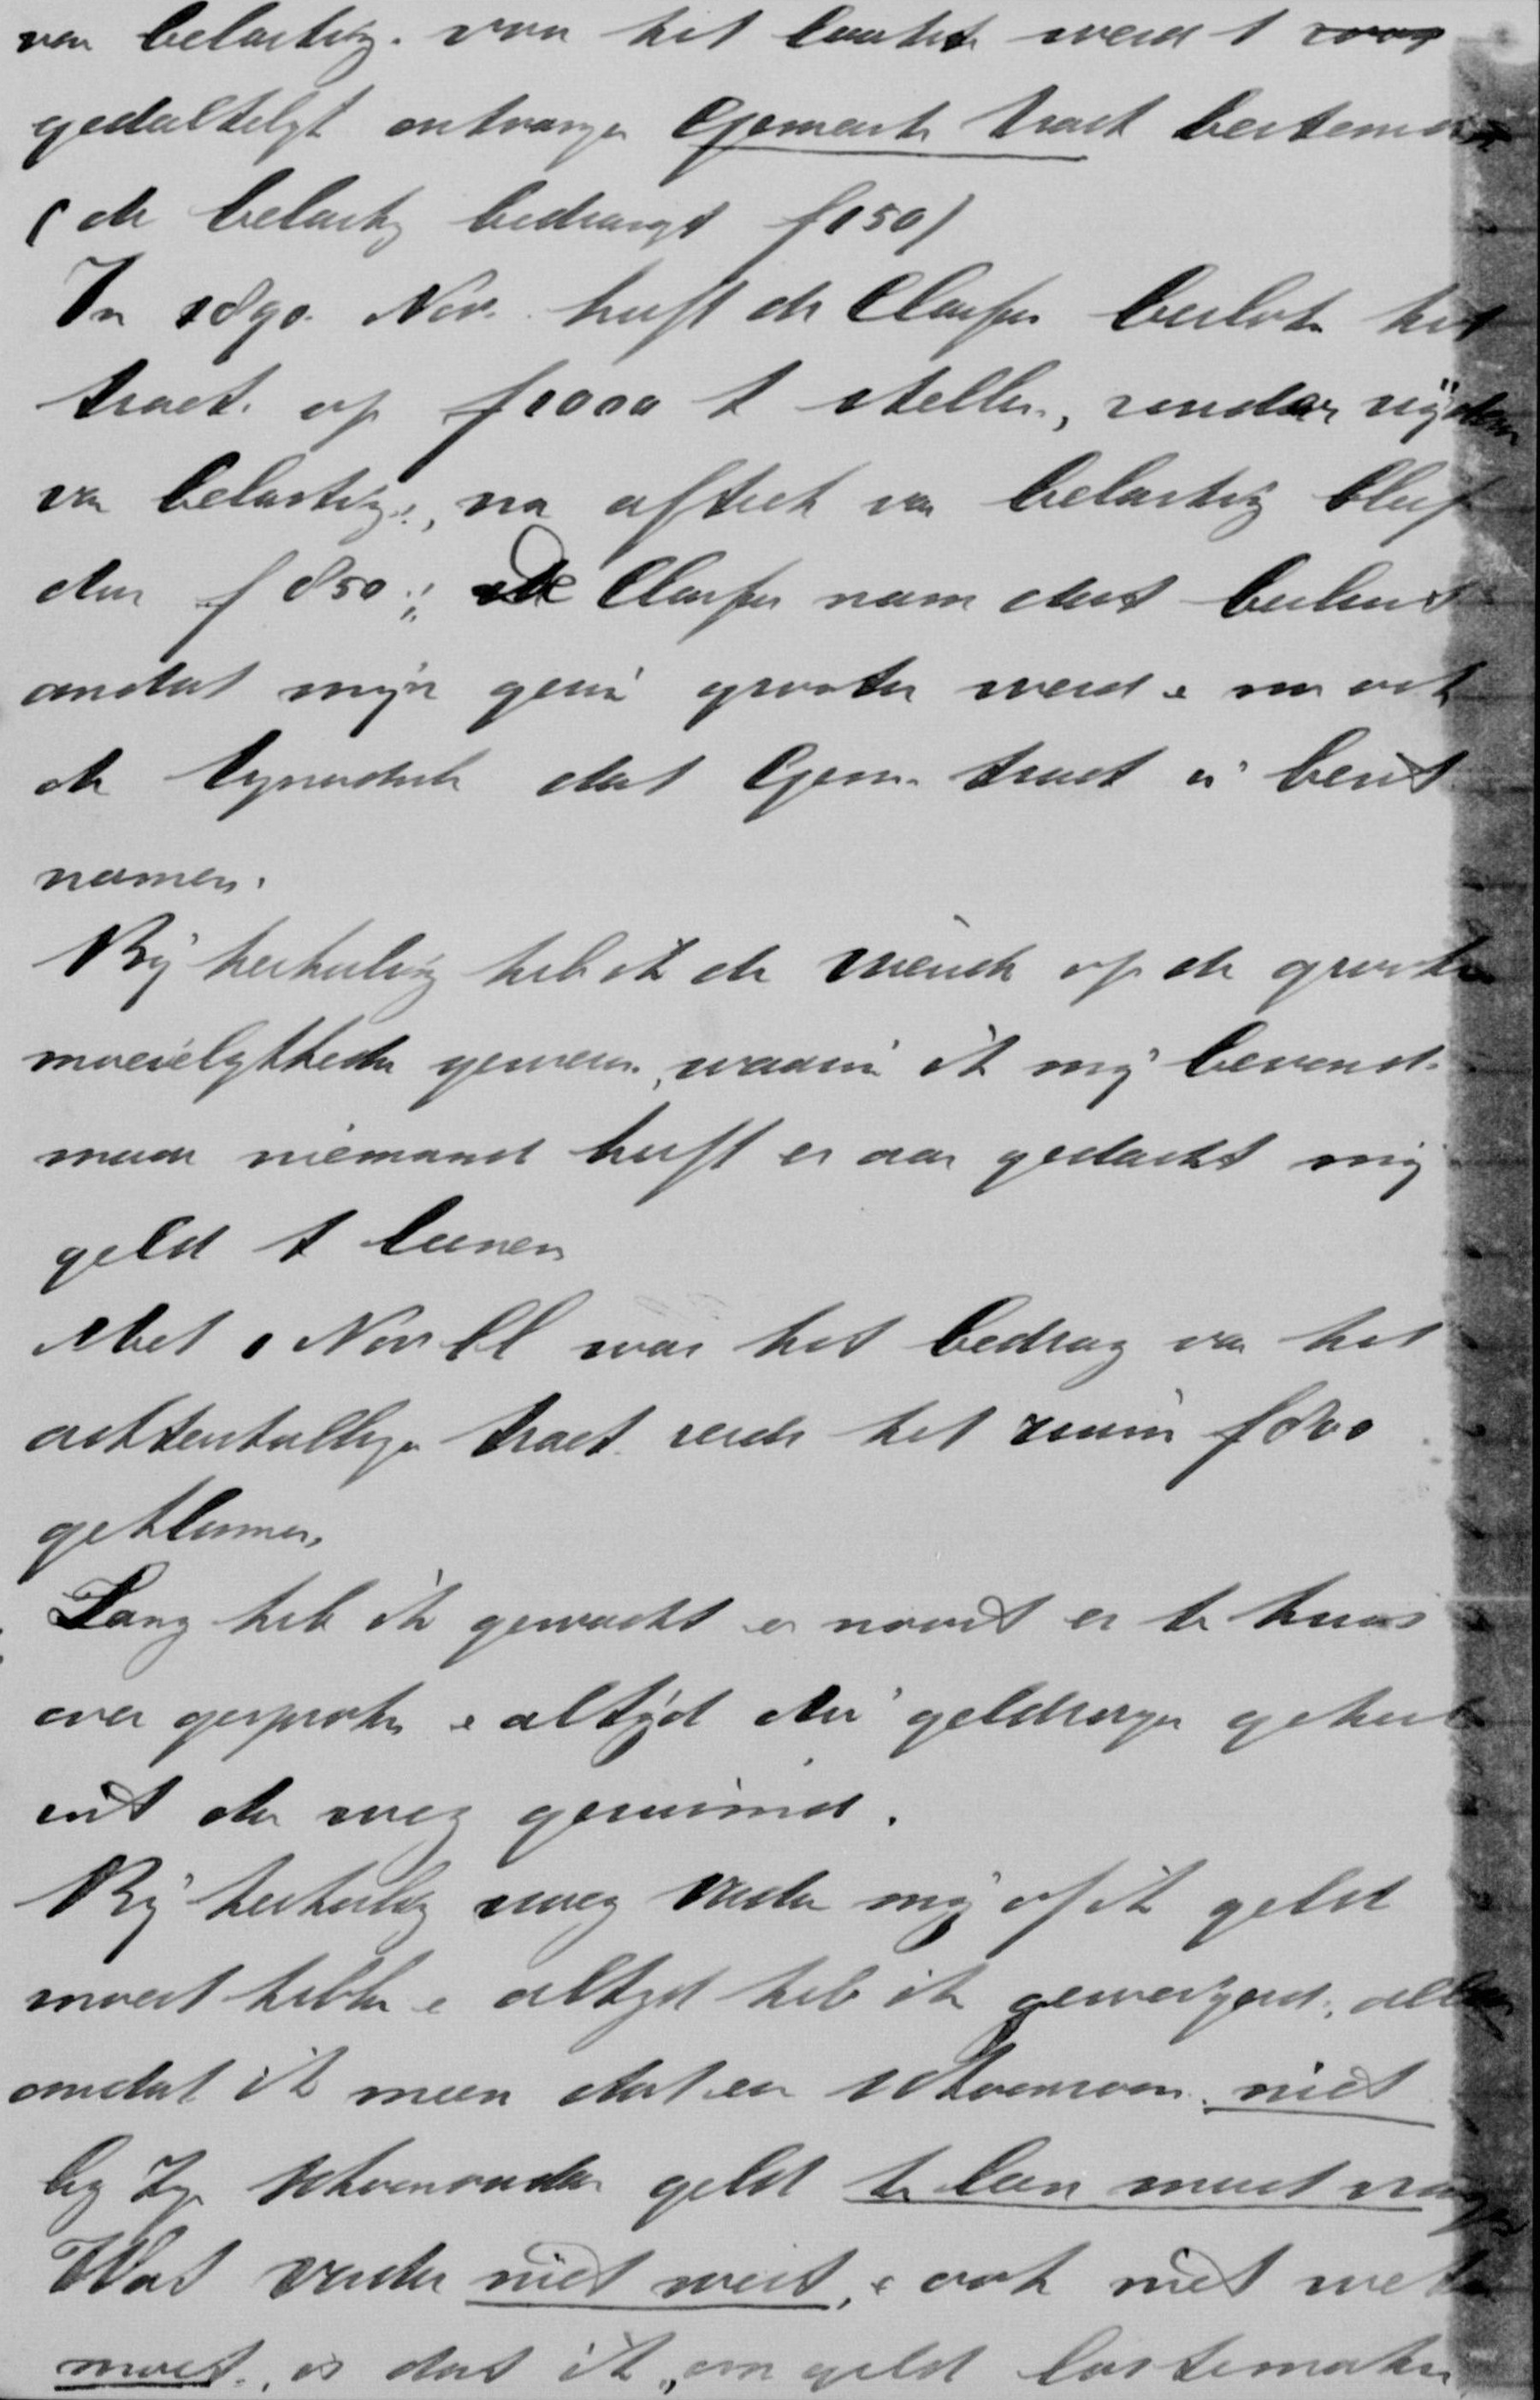 van belasting. van het laatste werd t
gedeeltelijk ontvangen Gemeente tract bestemd
(de belasting bedraagt f 150)
In 1890. Nov. heeft de Classis besloten het
tract. op f 1000 te stellen,
van belasting, na aftrek van belasting bleef
dan f 850; De Classis nam dat besluit
omdat mijn gezin grooter werd en nu ook
de dat Gem. tract in bezit
namen.
Bij herhaling heb ik de op de groote
moeielijkheden gewezen, waarin ik mij bevond.
maar niemand heeft er aan gedacht mij
geld te leenen
Met 1 Nov ll was het bedrag van het
achterstallige tract. reeds tot ruim f 800
geklommen.
Lang heb ik gewacht en nooit er te huis
over gesproken en altijd die geldzorgen geheel
uit den weg geruimd.
Bij herhaling vroeg Vader mij of ik geld
moest hebben en altijd heb ik geweigerd, alleen
omdat ik meen dat een schoonzoon niet
bij zijn schoonvader geld te leen moet vragen
Wat vader niet weet, en ook niet weten
moet, is dat ik, om geld los te maken